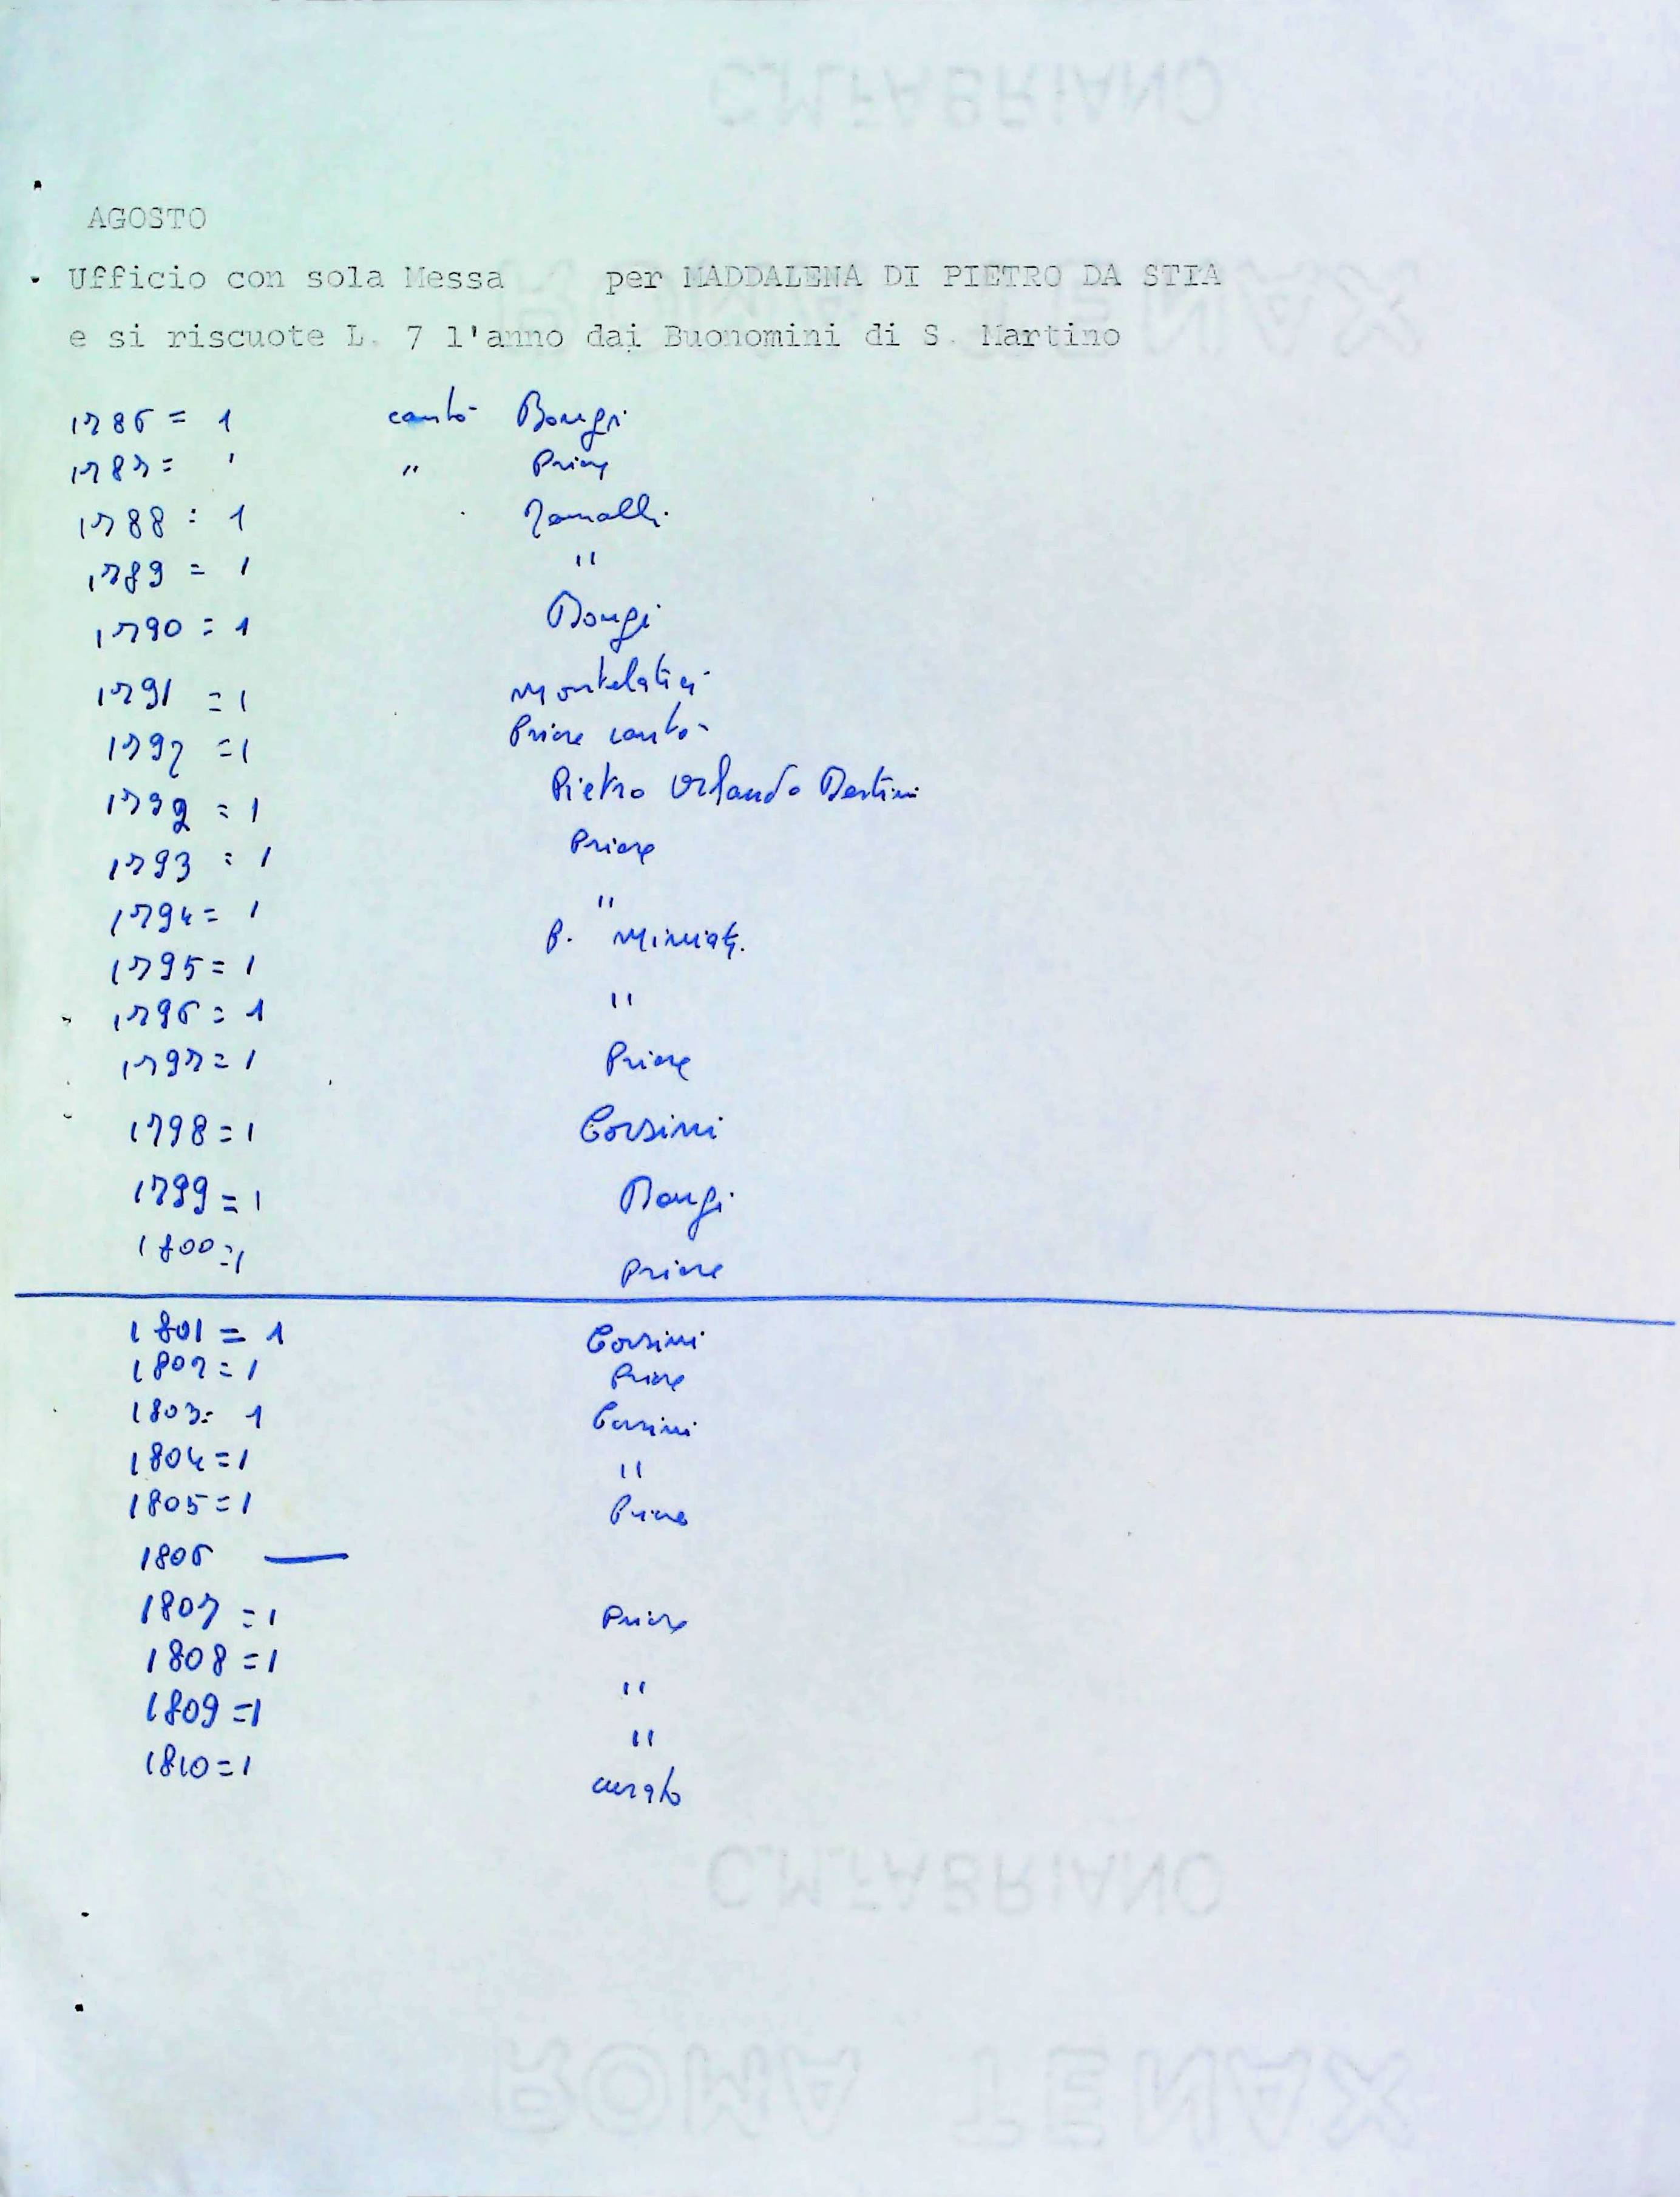 C.M.FABRIANO
AGOSTO
Ufficio con sola Messa per MADDALENA DI PIETRO DA STIA
ROMA TENAX
e si riscuote L. 7 l'anno dai Buonomini di S. Martino
1786 = 1 cantò Bongi
1787 = ' " Priore
1788 = 1
1789 = 1 "
1790 = 1 Bongi
1791 = 1 Montelatici
1792 = 1 Priore cantò
1792 = 1 Pietro Orlando Bertini
1793 = 1 Priore
1794 = 1 "
1795 = 1 P. Miniat.
1796 = 1 "
1797 = 1 Priore
1798 = 1 Corsini
1799 = 1 Bongi
1800 = 1 Priore
1801 = 1 Corsini
1802 = 1 Priore
1803 = 1 Corsini
1804 = 1 "
1805 = 1 Priore
1806 —
1807 = 1 Priore
1808 = 1 "
1809 = 1 "
1810 = 1 curato
C.M.FABRIANO
ROMA TENAX